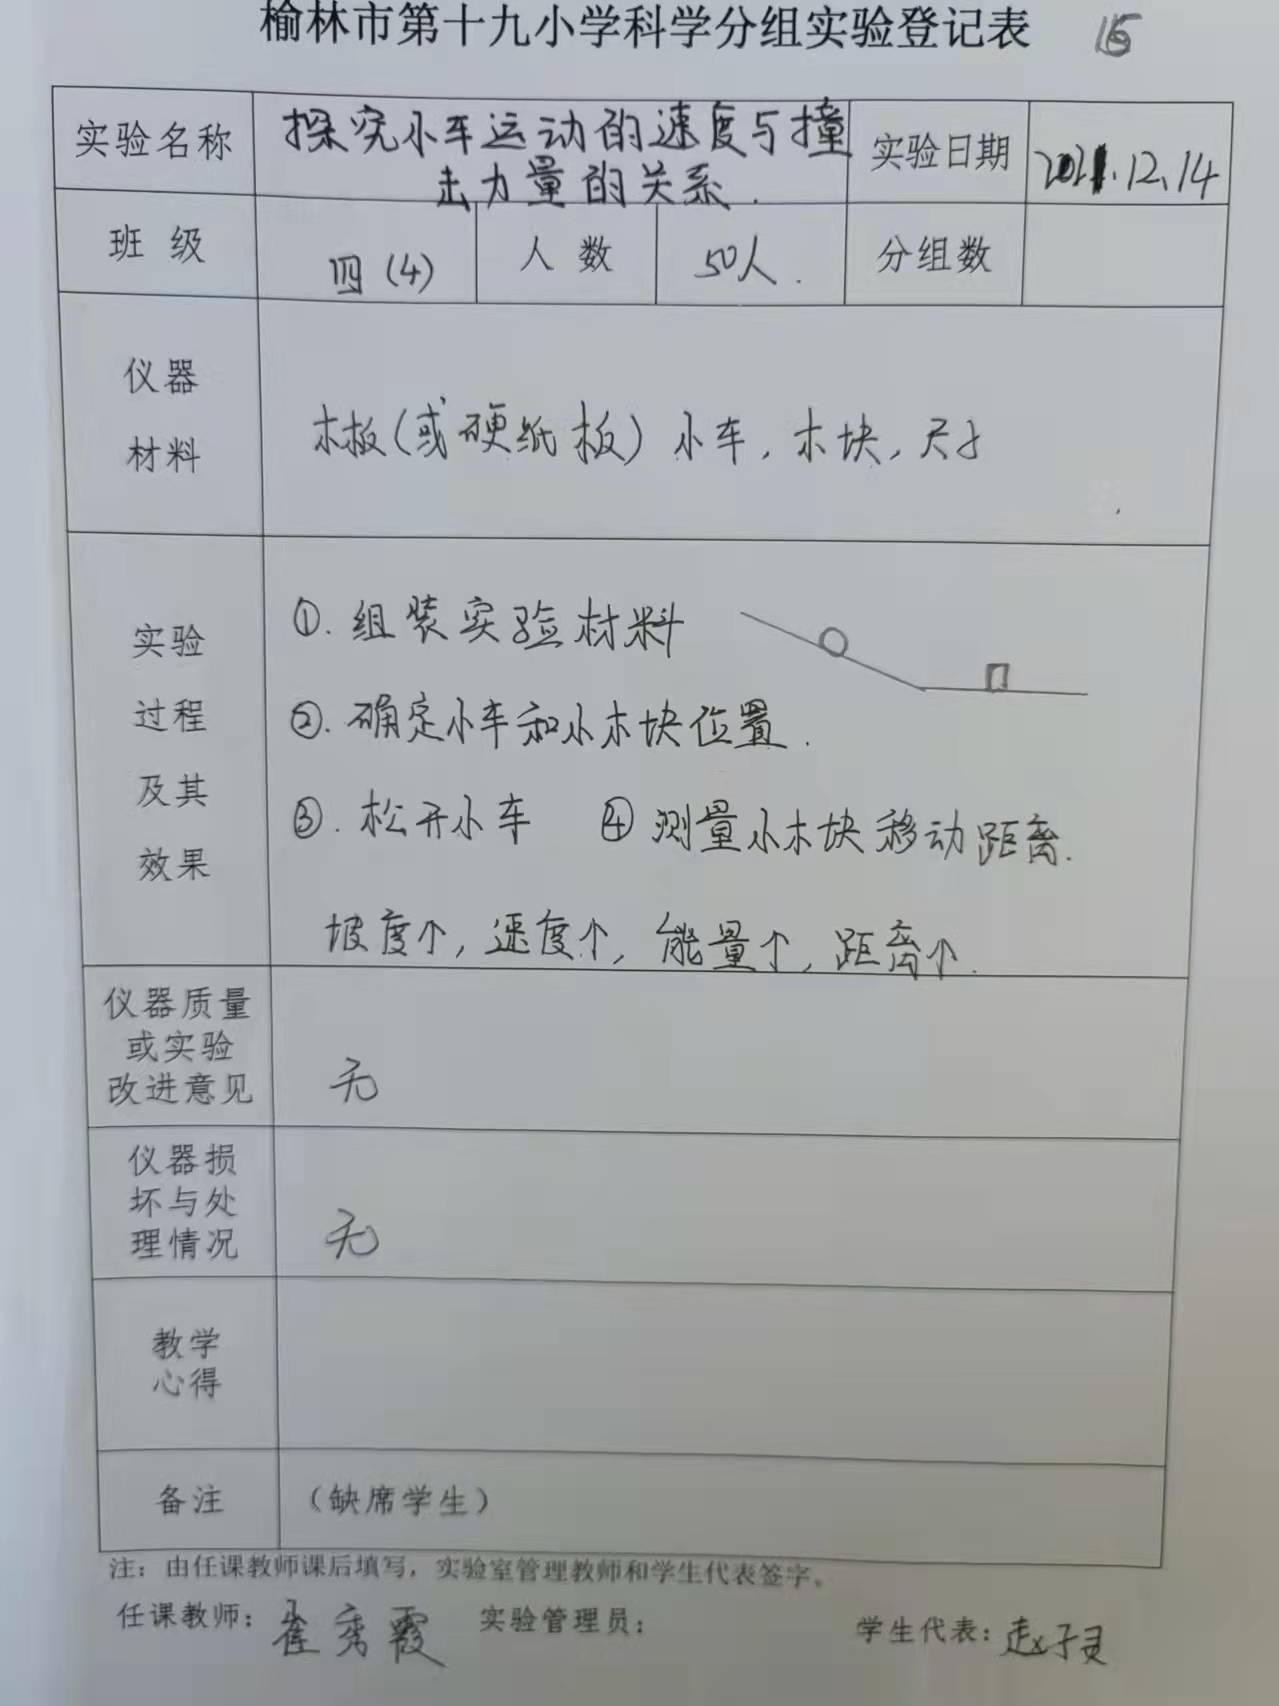 榆林市第十九小学科学分组实验登记表
实验名称 探究小车运动的速度与撞
击力量的关系. 实验日期 2021.12.14
班 级 四(4) 人 数 50人. 分组数
仪器
材料 木板(或硬纸板) 小车, 木块, 尺子
实验
过程
及其
效果
①. 组装实验材料
②. 确定小车和小木块位置.
③. 松开小车 ④ 测量小木块移动距离.
坡度个, 速度个, 能量个, 距离个.
仪器质量
或实验
改进意见 无
仪器损
坏与处
理情况 无
教学
心得
备注 (缺席学生)
注: 由任课教师课后填写, 实验室管理教师和学生代表签字。
任课教师: 崔秀霞 实验管理员: 学生代表: 赵子